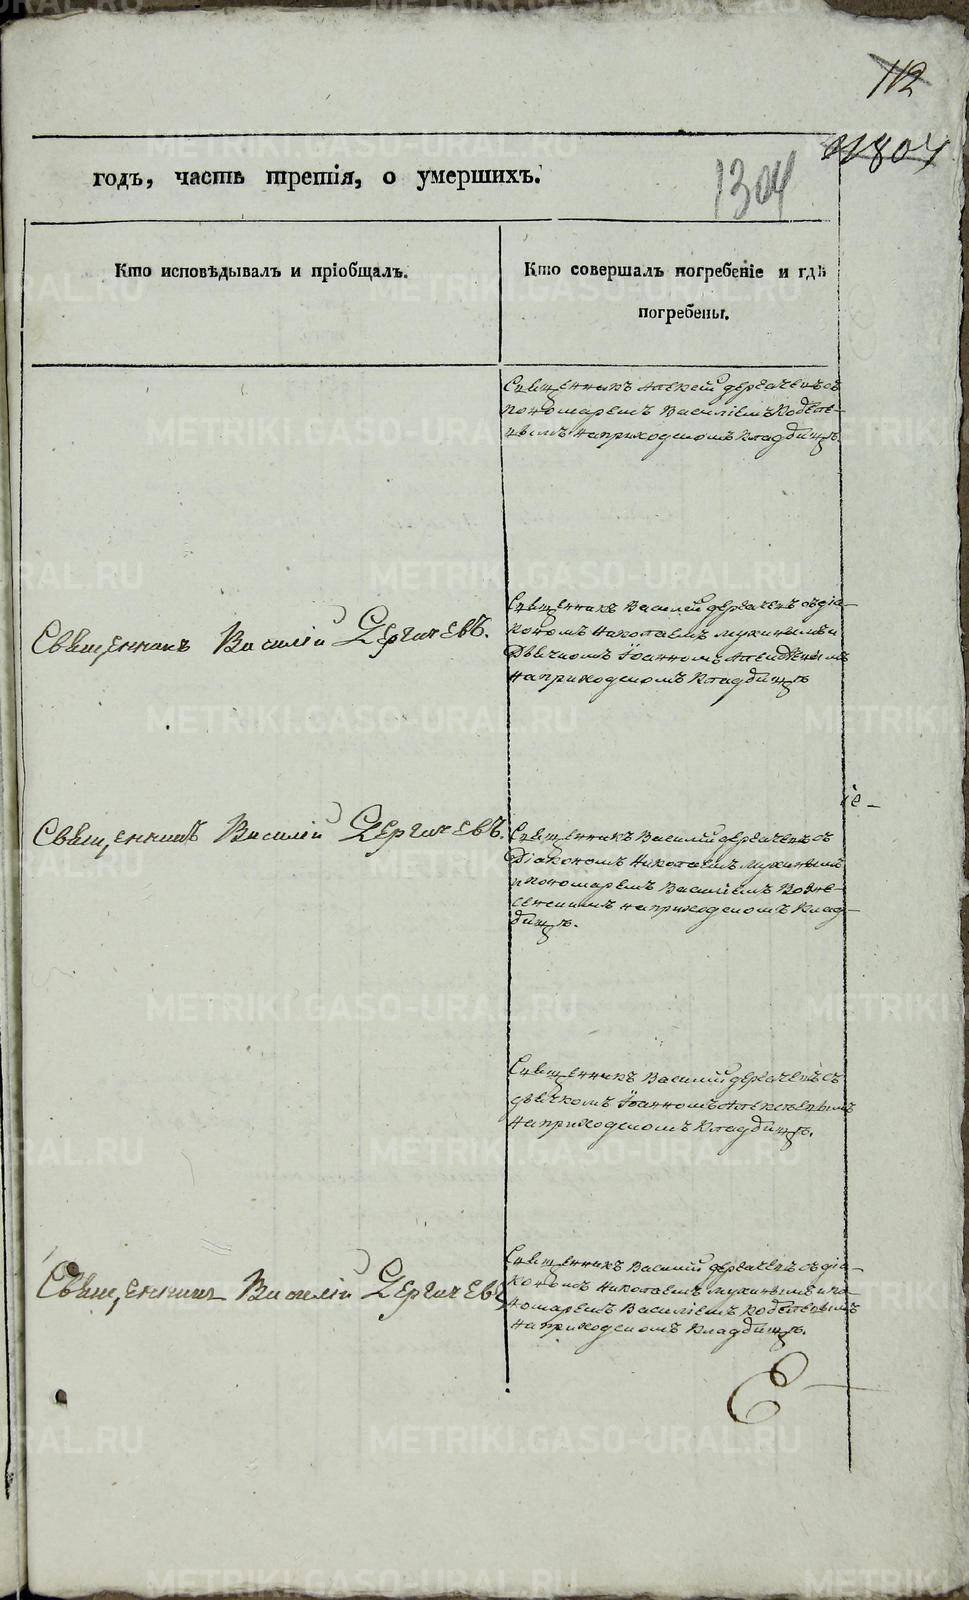 112
1304
годъ, часть третія, о умершихъ.
Кто исповѣдывалъ и пріобщалъ.
Кто совершалъ погребеніе и гдѣ
погребены.
Священникъ Алексѣй Дергачевъ съ
пономаремъ Василіемъ
на приходскомъ кладбищѣ.
Священникъ Василій Дергачевъ.
Священникъ Василій Дергачевъ съ діа-
кономъ Николаемъ Мухинымъ и
Дьячкомъ Іоанномъ
на приходскомъ кладбищѣ
Священникъ Василій Дергачевъ.
Священникъ Василій Дергачевъ съ
Діакономъ Николаемъ Мухинымъ
и пономаремъ Василіемъ Возне-
сенскимъ на приходскомъ клад-
бищѣ.
Священникъ Василій Дергачевъ съ
дьячкомъ Іоанномъ Алексѣевымъ
на приходскомъ кладбищѣ.
Священникъ Василій Дергачевъ
Священникъ Василій Дергачевъ съ діа-
кономъ Николаемъ Мухинымъ и по-
номаремъ Василіемъ
на приходскомъ кладбищѣ.
METRIKI.GASO-URAL.RU